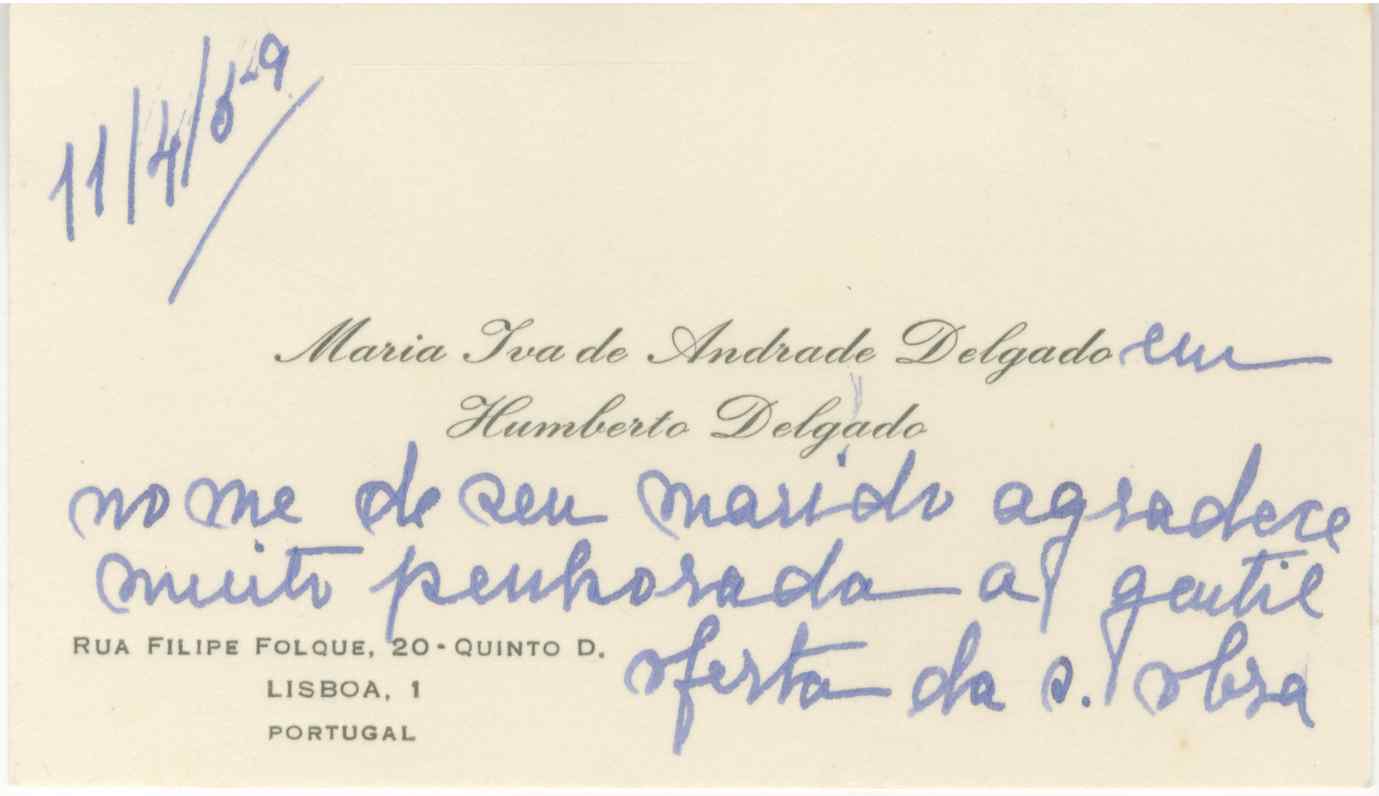 11/4/59
Maria Iva de Andrade Delgado em
Humberto Delgado
nome de seu marido agradece
muito penhorada a gentil
oferta da s. obra
RUA FILIPE FOLQUE, 20 - QUINTO D.
LISBOA, 1
PORTUGAL